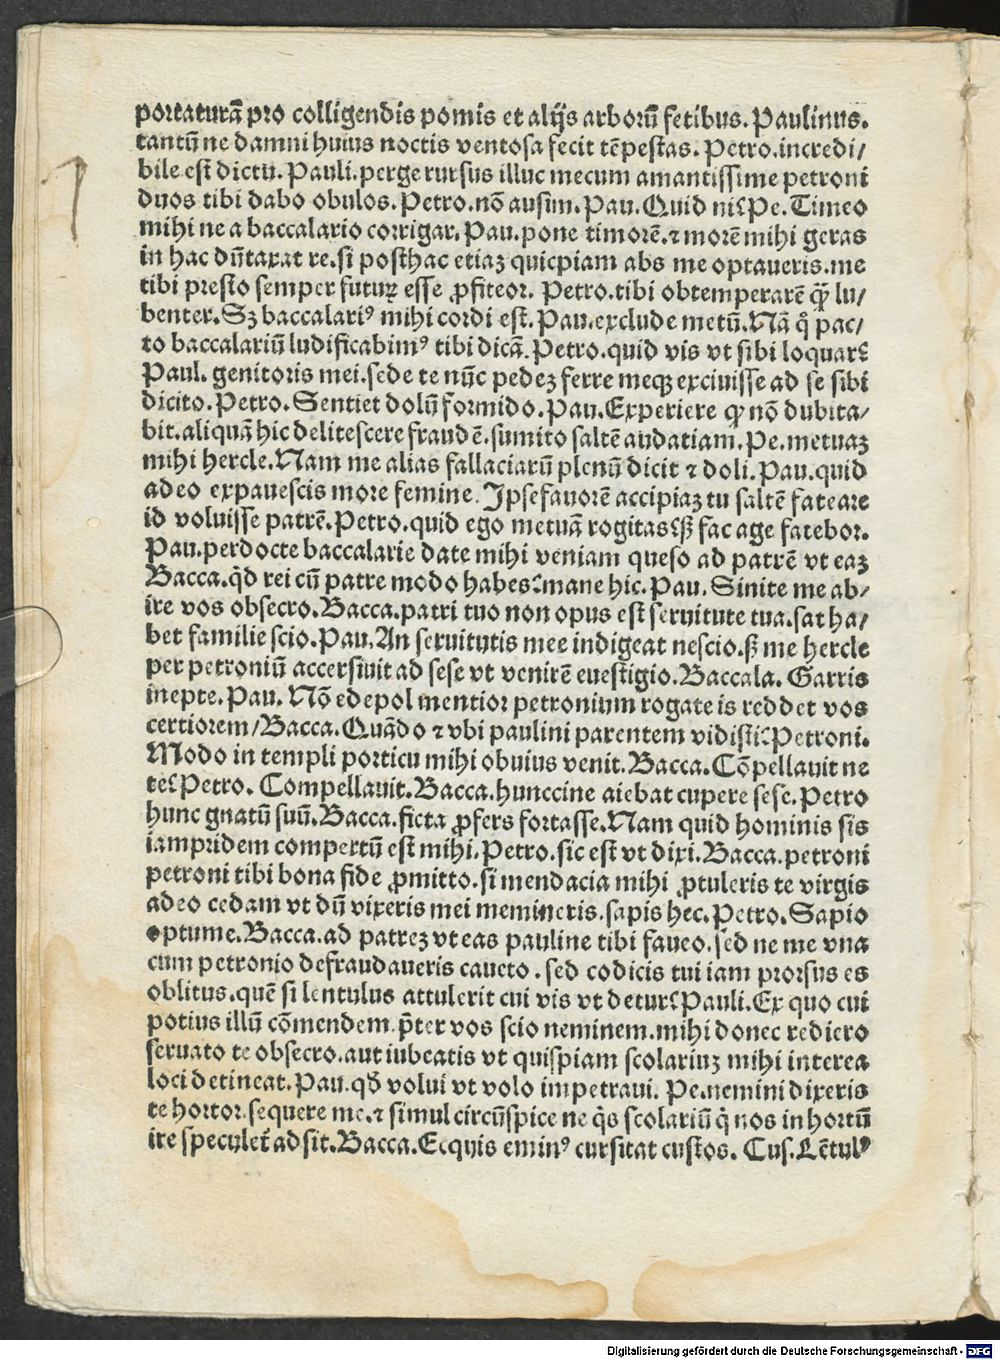 portaturā pro colligendis pomis et alijs arborū fetibus. Paulinus.
tantū ne damni huius noctis ventosa fecit tēpestas. Petro. incredi/
bile est dictu. Pauli. perge rursus illuc mecum amantissime petroni
duos tibi dabo obulos. Petro. nō ausim. Pau. Quid ni? Pe. Timeo
mihi ne a baccalario corrigar. Pau. pone timorē. ⁊ morē mihi geras
in hac dūtaxat re. si posthac etiaʒ quicpiam abs me optaueris. me
tibi presto semper futuꝝ esse ꝓfiteor. Petro. tibi obtemperarē ꝙ̄ lu/
benter. Sʒ baccalariꝰ mihi cordi est. Pau. exclude metū. Nā q̊ pac/
to baccalariū ludificabimꝰ tibi dicā. Petro. quid vis vt sibi loquar?
Paul. genitoris mei. sede te nūc pedeʒ ferre meqʒ exciuisse ad se sibi
dicito. Petro. Sentiet dolū formido. Pau. Experiere ꝙ nō dubita/
bit. aliquā hic delitescere fraudē. sumito saltē audatiam. Pe. metuaʒ
mihi hercle. Nam me alias fallaciarū plenū dicit ⁊ doli. Pau. quid
adeo expauescis more femine. Ipse fauorē accipiaʒ tu saltē fateare
id voluisse patrē. Petro. quid ego metuā rogitas? sꝫ fac age fatebor.
Pau. perdocte baccalarie date mihi veniam queso ad patrē vt eaʒ
Bacca. qd̄ rei cū patre modo habes? mane hic. Pau. Sinite me ab/
ire vos obsecro. Bacca. patri tuo non opus est seruitute tua. sat ha/
bet familie scio. Pau. An seruitutis mee indigeat nescio. sꝫ me hercle
per petroniū accersiuit ad sese vt venirē euestigio. Baccala. Garris
inepte. Pau. Nō edepol mentior petronium rogate is reddet vos
certiorem/ Bacca. Quādo ⁊ vbi paulini parentem vidisti? Petroni.
Modo in templi porticu mihi obuius venit. Bacca. Cōpellauit ne
te? Petro. Compellauit. Bacca. hunccine aiebat cupere sese. Petro
hunc gnatū suū. Bacca. ficta ꝓfers fortasse. Nam quid hominis sis
iampridem compertū est mihi. Petro. sic est vt dixi. Bacca. petroni
petroni tibi bona fide ꝓmitto. si mendacia mihi ꝓtuleris te virgis
adeo cedam vt dū vixeris mei memineris. sapis hec. Petro. Sapio
optume. Bacca. ad patreʒ vt eas pauline tibi faueo. sed ne me vna
cum petronio defraudaueris caueto. sed codicis tui iam prorsus es
oblitus. quē si lentulus attulerit cui vis vt detur? Pauli. Ex quo cui
potius illū cōmendem. p̄ter vos scio neminem. mihi donec rediero
seruato te obsecro. aut iubeatis vt quispiam scolariuʒ mihi interea
loci detineat. Pau. qd̄ volui vt volo impetraui. Pe. nemini dixeris
te hortor. sequere me. ⁊ simul circūspice ne q̇s scolariū q̇ nos in hortū
ire speculet᷑ adsit. Bacca. Ecquis eminꝰ cursitat custos. Cus. Lētulꝰ
Digitalisierung gefördert durch die Deutsche Forschungsgemeinschaft - DFG